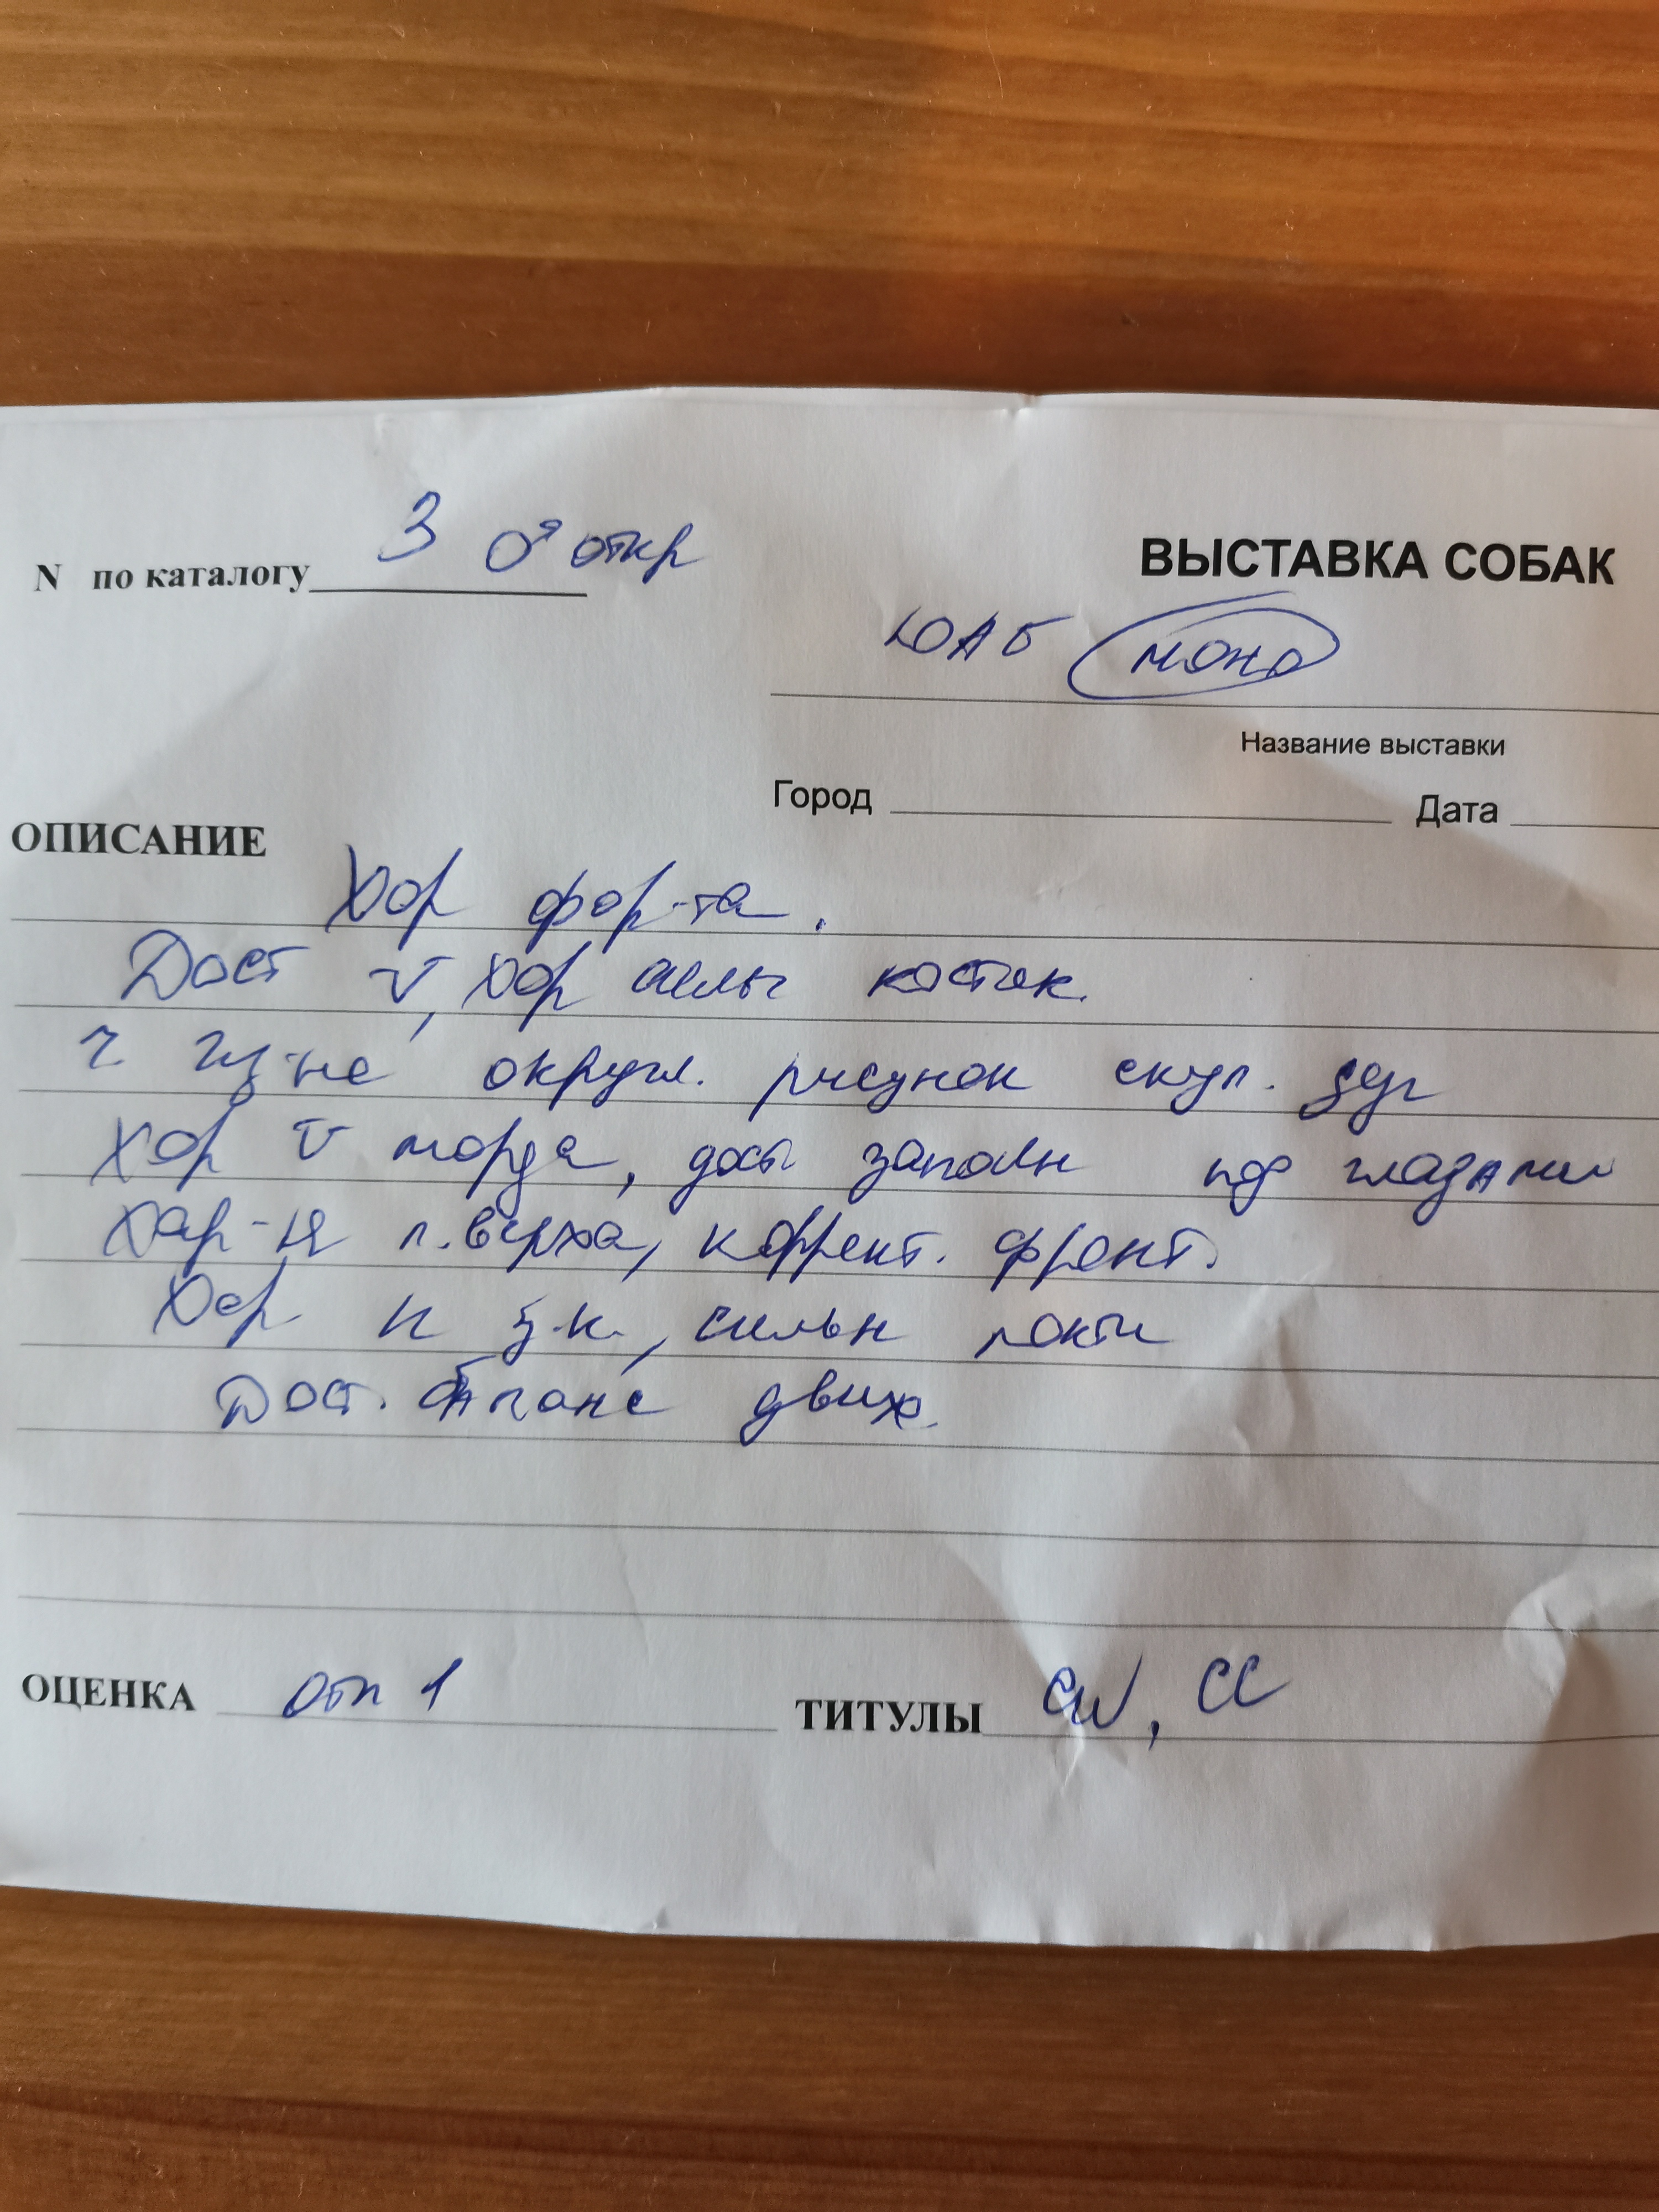 N по каталогу 3 ♂ откр
ВЫСТАВКА СОБАК
ЮАБ моно
Название выставки
Город Дата
ОПИСАНИЕ
Хор фор-та.
Дост V, Хор силы костяк.
округл. рисунок скул. дуг
Хор V морда, дост заполн под глазами
Хар-я л. верха, коррект. фронт.
Хор з.к., сильн локти
Дост. баланс движ.
ОЦЕНКА отл 1
ТИТУЛЫ CW, CC